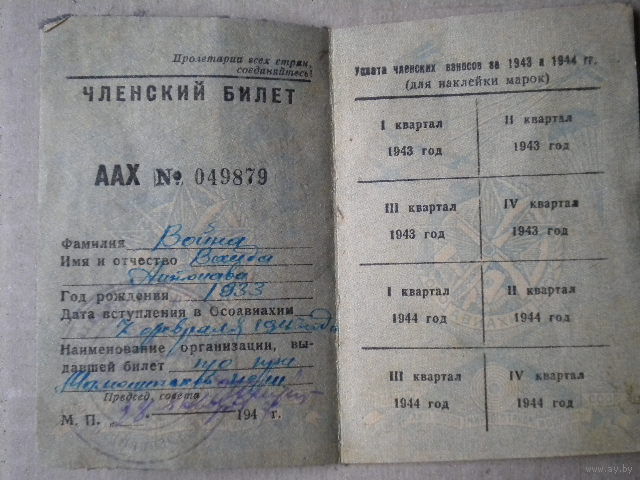 Пролетарии всех стран,
соединяйтесь!
ЧЛЕНСКИЙ БИЛЕТ
ААХ № 049879
Фамилия Война
Имя и отчество
Год рождения 1933
Дата вступления в Осоавиахим
7 февраля
Наименование организации, вы-
давшей билет
Председ. совета
М. П. 194 г.
Уплата членских взносов за 1943 и 1944 гг.
(для наклейки марок)
I квартал
1943 год
II квартал
1943 год
III квартал
1943 год
IV квартал
1943 год
I квартал
1944 год
II квартал
1944 год
III квартал
1944 год
IV квартал
1944 год
www.ay.by